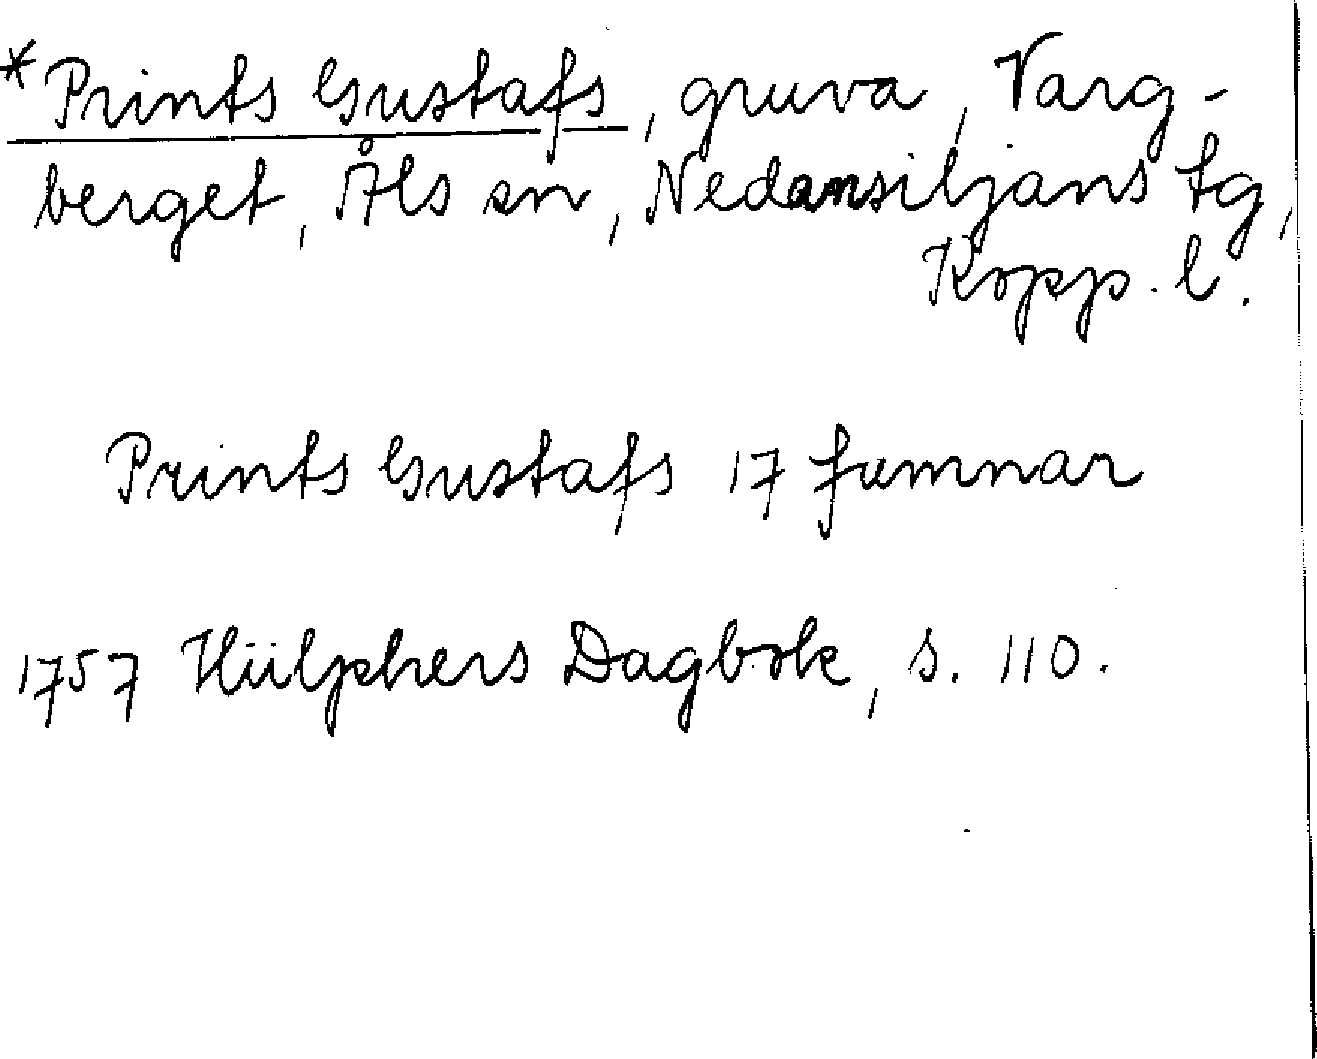 *Prints Gustafs, gruva, Varg-
berget, Åls sn, Nedansiljans tg,
Kopp. l.
Prints Gustafs 17 famnar
1757 Hülphers Dagbok, s. 110.